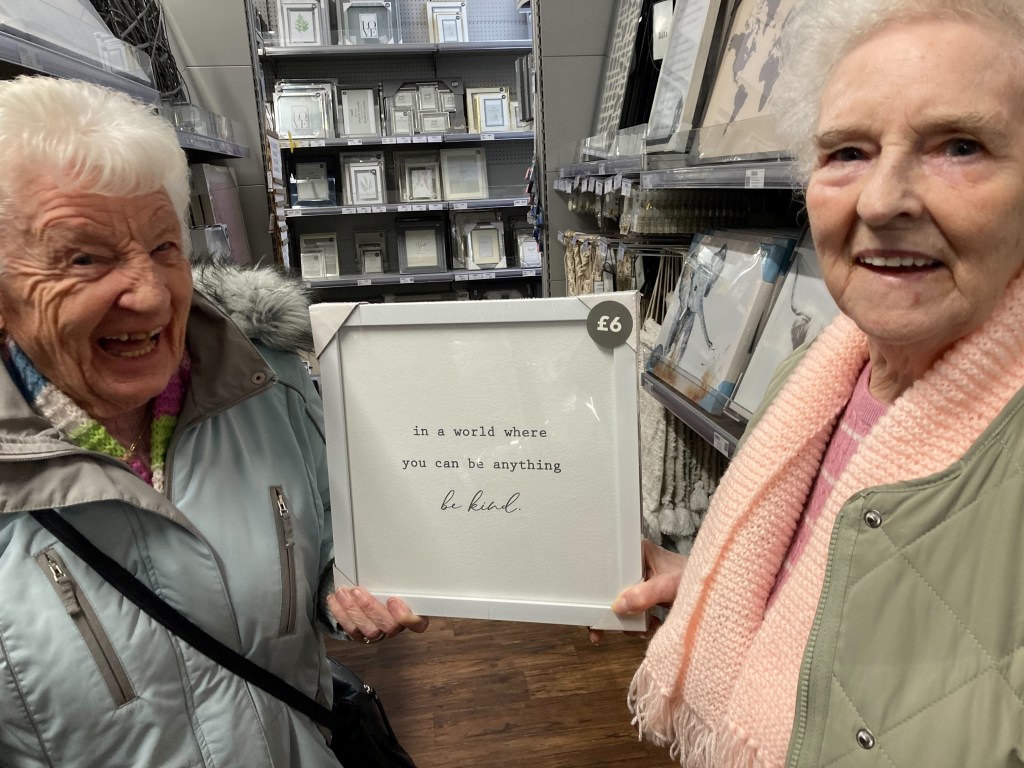 £6
in a world where
you can be anything
be kind.